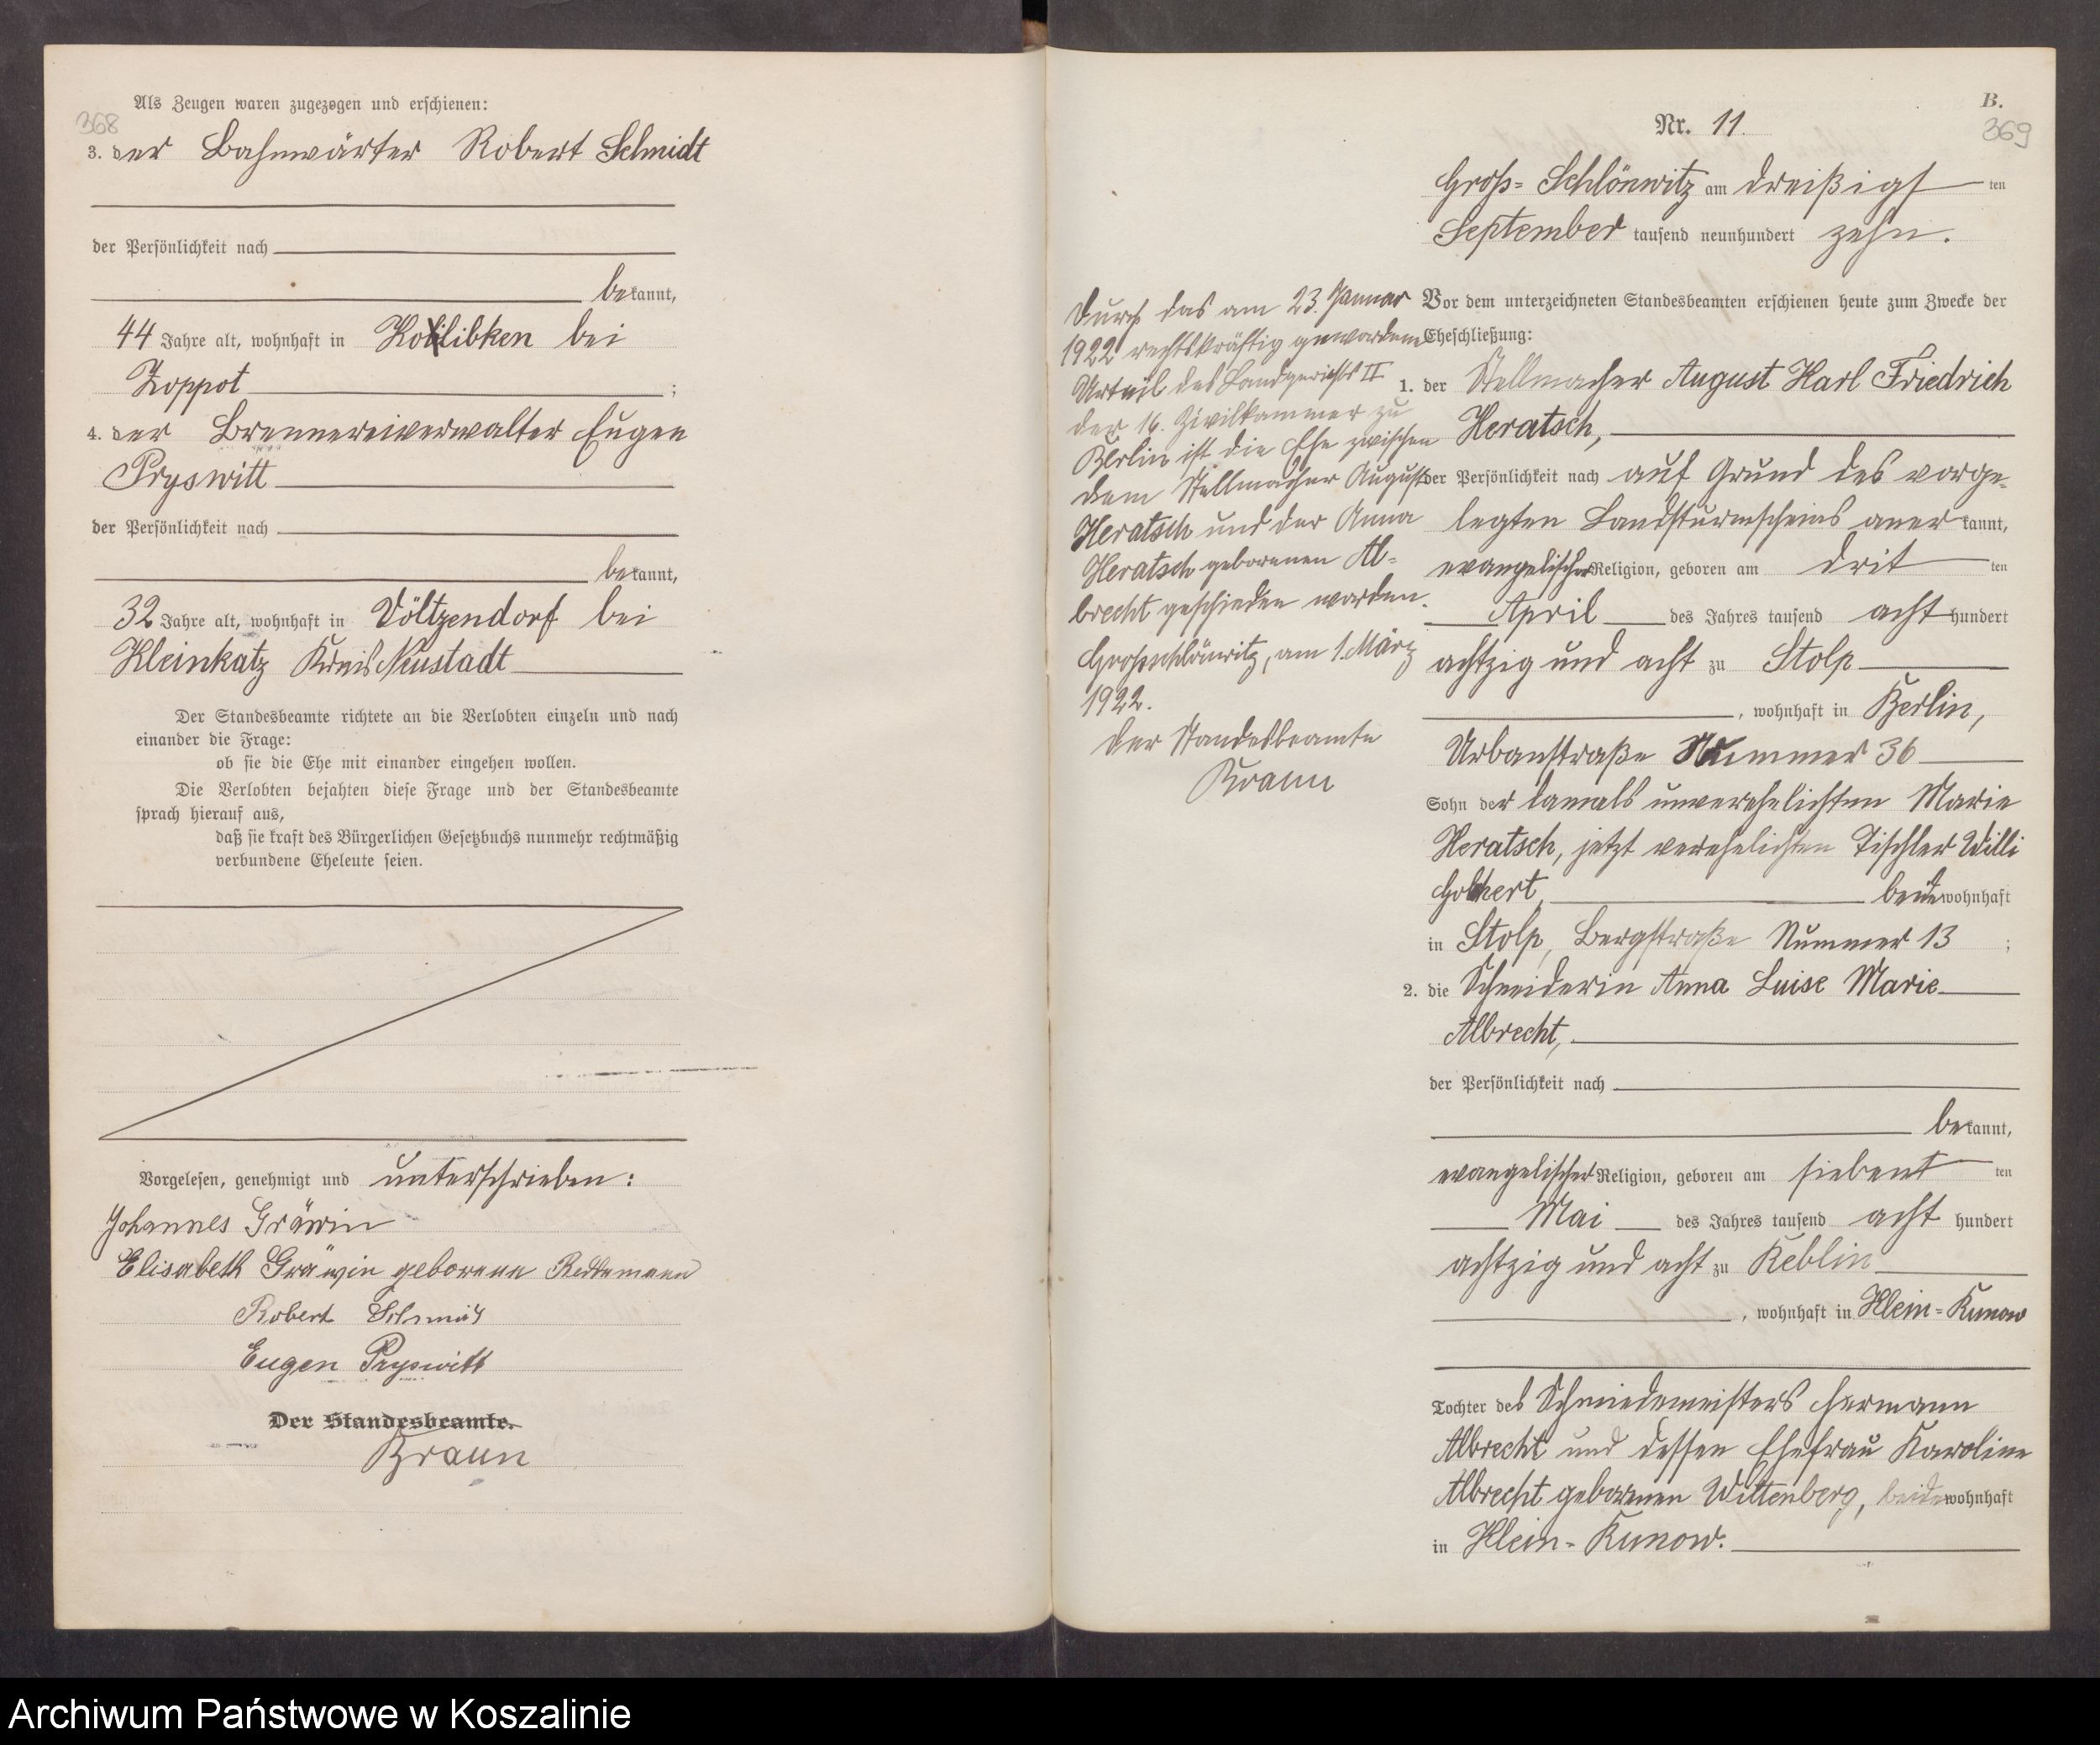 368
Als Zeugen waren zugezogen und erschienen:
3. der Bahnwärter Robert Schmidt
der Persönlichkeit nach
bekannt,
44 Jahre alt, wohnhaft in Kolibken bei
Zoppot ;
4. der Brennereiverwalter Eugen
Pryswitt
der Persönlichkeit nach
bekannt,
32 Jahre alt, wohnhaft in Völtzendorf bei
Kleinkatz Kreis Neustadt
Der Standesbeamte richtete an die Verlobten einzeln und nach
einander die Frage:
ob sie die Ehe mit einander eingehen wollen.
Die Verlobten bejahten diese Frage und der Standesbeamte
sprach hierauf aus,
daß sie kraft des Bürgerlichen Gesetzbuchs nunmehr rechtmäßig
verbundene Eheleute seien.
Vorgelesen, genehmigt und unterschrieben:
Johannes Gräwin
Elisabeth Gräwin geborene
Robert Schmidt
Eugen Pryswitt
Der Standesbeamte.
Braun
B.
369
Nr. 11.
Groß-Schlönwitz am dreißigsten
September tausend neunhundert zehn.
Vor dem unterzeichneten Standesbeamten erschienen heute zum Zwecke der
Eheschließung:
1. der Stellmacher August Karl Friedrich
Heratsch,
der Persönlichkeit nach auf Grund des vorge-
legten Landsturmscheins anerkannt,
evangelischer Religion, geboren am dritten
April des Jahres tausend achthundert
achtzig und acht zu Stolp
, wohnhaft in Berlin,
Urbanstraße Nummer 36
Sohn der damals unverehelichten Marie
Heratsch, jetzt verehelichten Tischler Willi
beide wohnhaft
in Stolp, Bergstraße Nummer 13 ;
2. die Schneiderin Anna Luise Marie
Albrecht,
der Persönlichkeit nach
bekannt,
evangelischer Religion, geboren am siebenten
Mai des Jahres tausend acht hundert
achtzig und acht zu Reblin
, wohnhaft in Klein-Runow
Tochter des Schmiedemeisters Hermann
Albrecht und dessen Ehefrau Karoline
Albrecht geborenen Wittenberg, beide wohnhaft
in Klein-Runow.
Durch das am 23. Januar
1922 rechtskräftig gewordene
Urteil des Landgerichts II
der 16. Zivilkammer zu
Berlin ist die Ehe zwischen
dem Stellmacher August
Heratsch und der Anna
Heratsch geborenen Al-
brecht geschieden worden.
Großschlönwitz, am 1. März
1922.
Der Standesbeamte
Braun
Archiwum Państwowe w Koszalinie